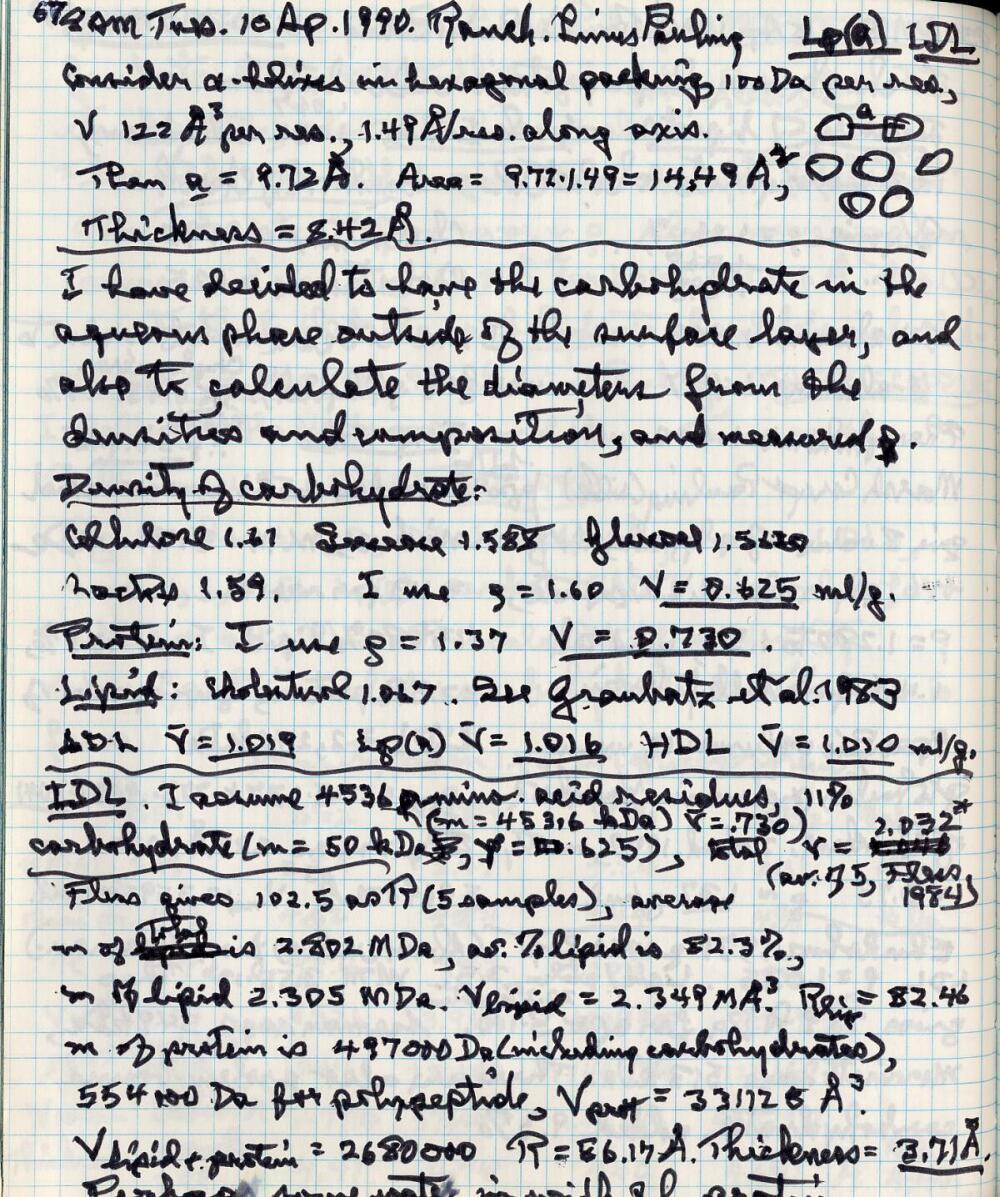 67 8AM Tues. 10 Ap. 1990. Ranch. Linus Pauling Lp(a) LDL
Consider α-helixes in hexagonal packing, 100 Da per res.,
V 122 Å³ per res., 1.49 Å/res. along axis.
a
Then a = 9.72 Å. Area = 9.72·1.49 = 14.49 Å²,
Thickness = 8.42 Å.
I have decided to have the carbohydrate in the
aqueous phase outside of the surface layer, and
also to calculate the diameters from the
densities and composition, and measured
Density of carbohydrate:
Cellulose 1.27 Sucrose 1.588 Glucose 1.5620
Lactose 1.59. I use ρ = 1.60 V = 0.625 ml/g.
Protein: I use ρ = 1.37 V = 0.730.
Lipid: Cholesterol 1.067. See et al. 1983
LDL V̄ = 1.019 Lp(a) V̄ = 1.016 HDL V̄ = 1.010 ml/g.
LDL. I assume 4536 amino-acid residues, 11%
(m = 453.6 kDa) V̄ = .730)
carbohydrate (m = 50 kDa, V = .625), total r = 2.032*
(av. of 5, Fless, 1984)
Fless gives 102.5 as R (5 samples), average
m of total is 2.802 MDa, av. % lipid is 82.3%,
m of lipid 2.305 MDa. V lipid = 2.349 MÅ³ R lip = 82.46
m of protein is 497000 Da (including carbohydrates),
554100 Da for polypeptide, V prot = 331128 Å³.
V lipid + protein = 2680000 R = 86.17 Å. Thickness = 3.71 Å.